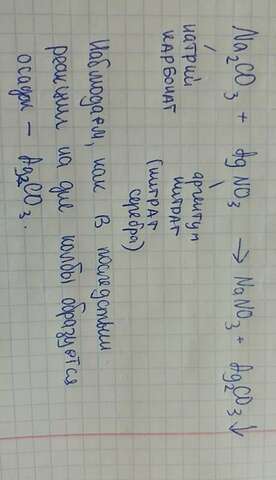 Na₂CO₃ + AgNO₃ → NaNO₃ + Ag₂CO₃↓
натрий аргентум
карбонат нитрат
(нитрат
серебра)
Наблюдаем, как в последствии
реакции на дне колбы образуется
осадок – Ag₂CO₃.